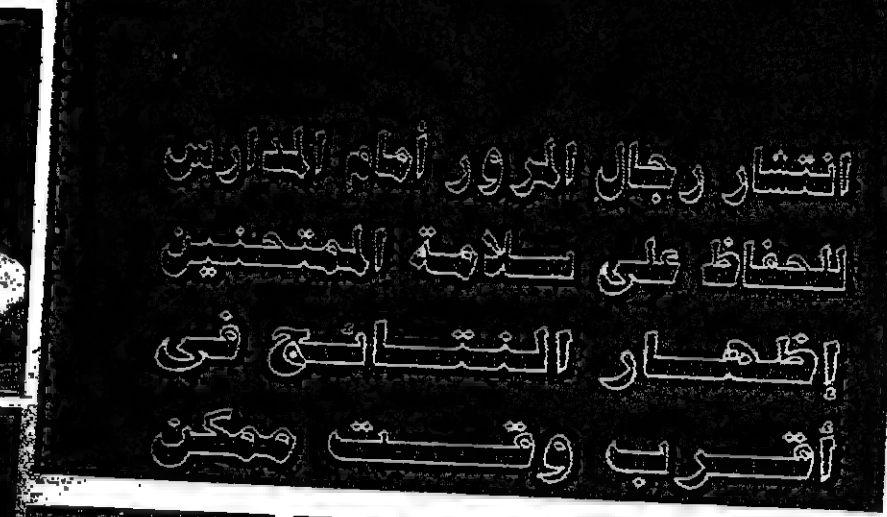 انتشار رجال المرور أمام المدارس
للحفاظ على سلامة الممتحنين
إظهار النتائج فى
أقرب وقت ممكن